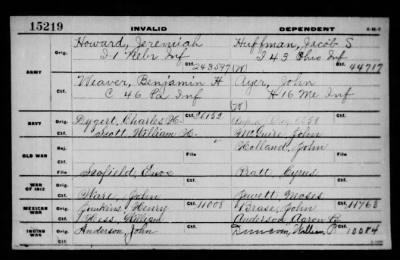 15219 INVALID DEPENDENT
Orig. Howard, Jeremiah Huffman, Jacob S
I 1 Nebr Inf I 43 Ohio Inf
Ctf. 243597 Ctf. 44717
ARMY
Weaver, Benjamin H Ayer, John
Orig. C 46 Pa Inf H 16 Me Inf
Ctf. Ctf.
NAVY Orig. Dygert, Charles H. Ctf.
Ctf. Scott, William H. McGuire, John
OLD WAR Rej. Holland, John
File File
Orig. Scofield, Enos Pratt, Cyrus
WAR OF 1812 Ctf. Ctf.
Ware, John Jewett, Moses
MEXICAN WAR Orig. Jenkins, Henry Ctf. 11008 Brase, John Ctf. 11768
Hess, William Anderson, Aaron
INDIAN WAR Orig. Anderson, John Ctf. Duncan, William P. Ctf. 10084